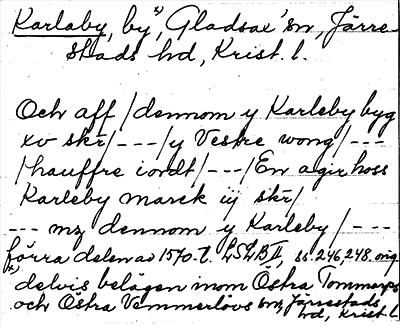 Karlaby, by x), Gladsax' sn, Järre-
stads hd, Krist. l.
Och aff / dennom y Karleby byg
xv skr / - - - / y Vestre wong / - - -
/ hauffre iordt / - - - / En agir hoss
Karleby marck iij skr /
- - - mz dennom y Karleby / - - -
förra delen av 1570-t. LSLB II, ss. 246, 248. orig.
x) delvis belägen inom Östra Tommarps
och Östra Vemmerlövs snr, Järrestads
hd, Krist. l.